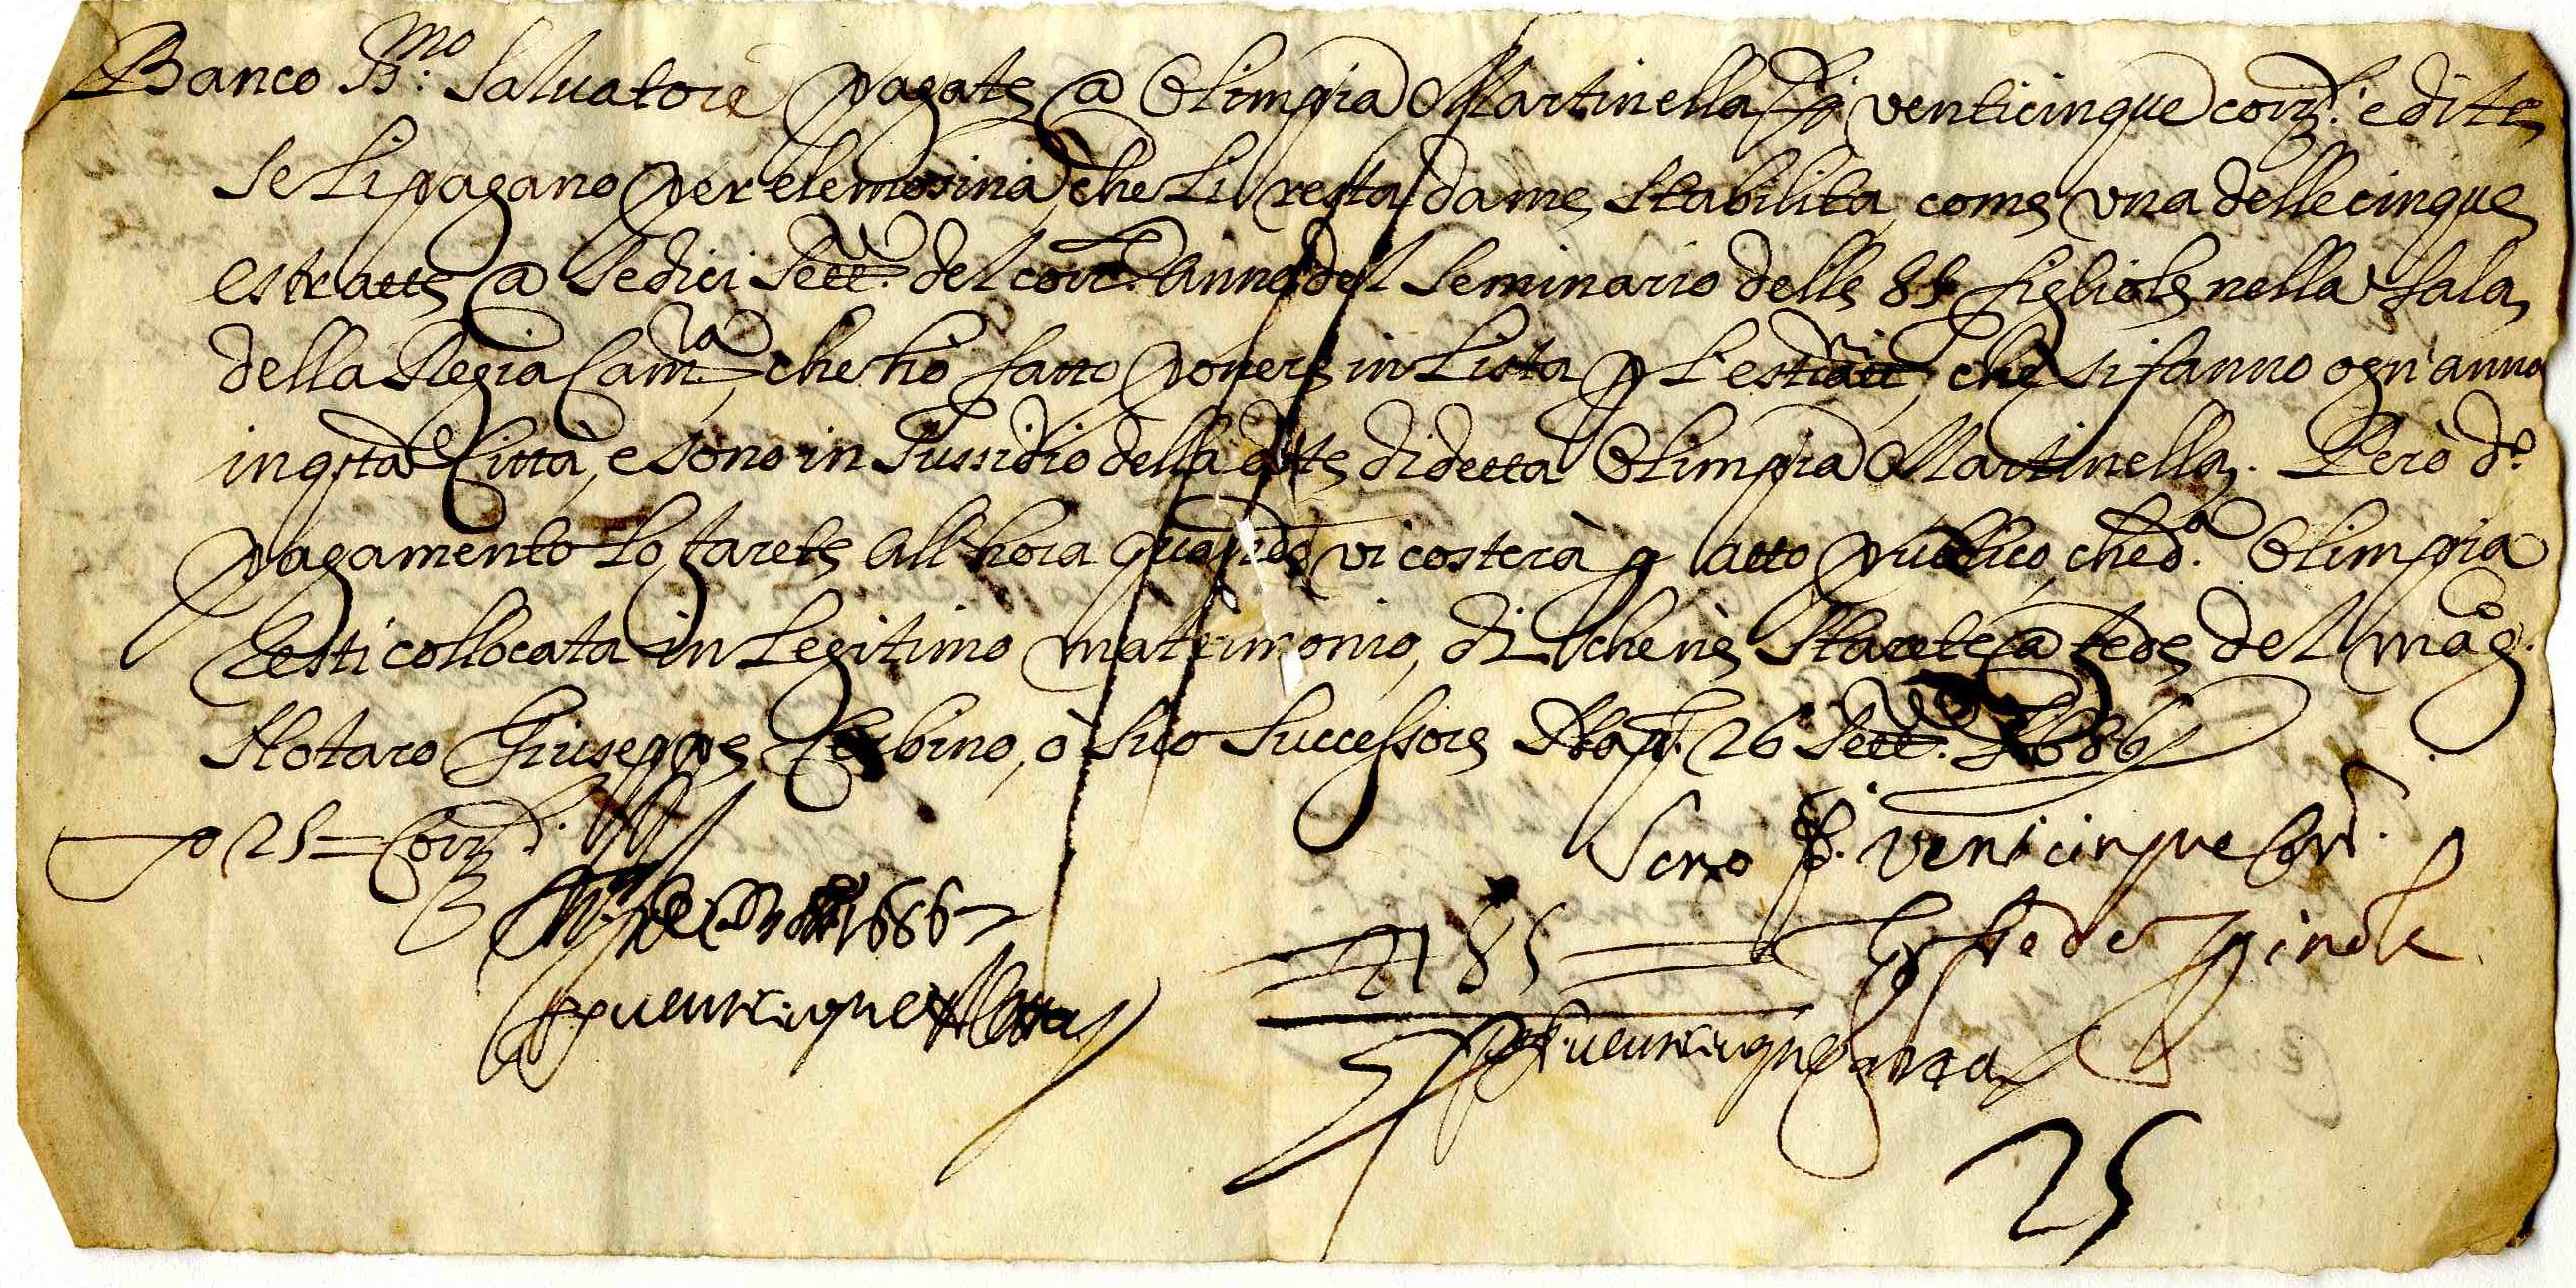 Banco SS.mo Salvatore pagate a Olimpia Martinella d. venticinque corr.ti e dite
se li pagano per elemosina che li resta da me stabilita come una delle cinque
estratte a sedici sett.e del corr.te anno del seminario delle figliole nella sala
della Regia Cam.ra, che hò fatto ponere in lista p l'estratt.ni, che si fanno ogn'anno
in qsta Città, e sono in sussidio della dote di detta Olimpia Martinella. Però d.o
pagamento lo farete all'hora quando vi costerà p atto publico, che d.a Olimpia
resti collocata in legitimo matrimonio, di che ne starete a fede del mag.co
Notaro Giuseppe bino, ò suo successore Nap. 26 Sett.e 1686
25 = Corr.ti
Sono d. venticinque Corr.ti
1686
85
venticinque
venticinque
25